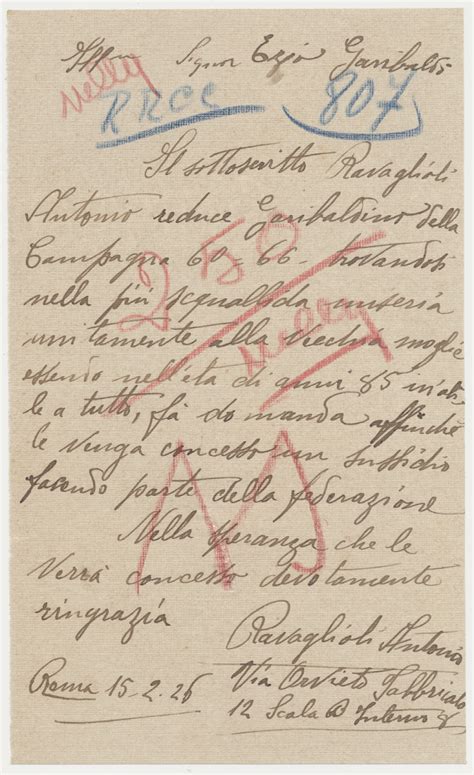 Ill.mo Signor Ezio Garibaldi
Nelly
RRCC
807
Il sottoscritto Ravaglioli
Antonio reduce Garibaldino della
Campagna 60-66- trovandosi
nella più squallida miseria
unitamente alla Vecchia moglie
essendo nell'età di anni 85 inabi
le a tutto, fà domanda affinchè
le venga concesso un sussidio
facendo parte della federazione
250
Nelly
Nella speranza che le
verrà concesso devotamente
ringrazia
Ravaglioli Antonio
Roma 15-2-26
Via Orvieto Fabbricato
12 Scala Interno 8